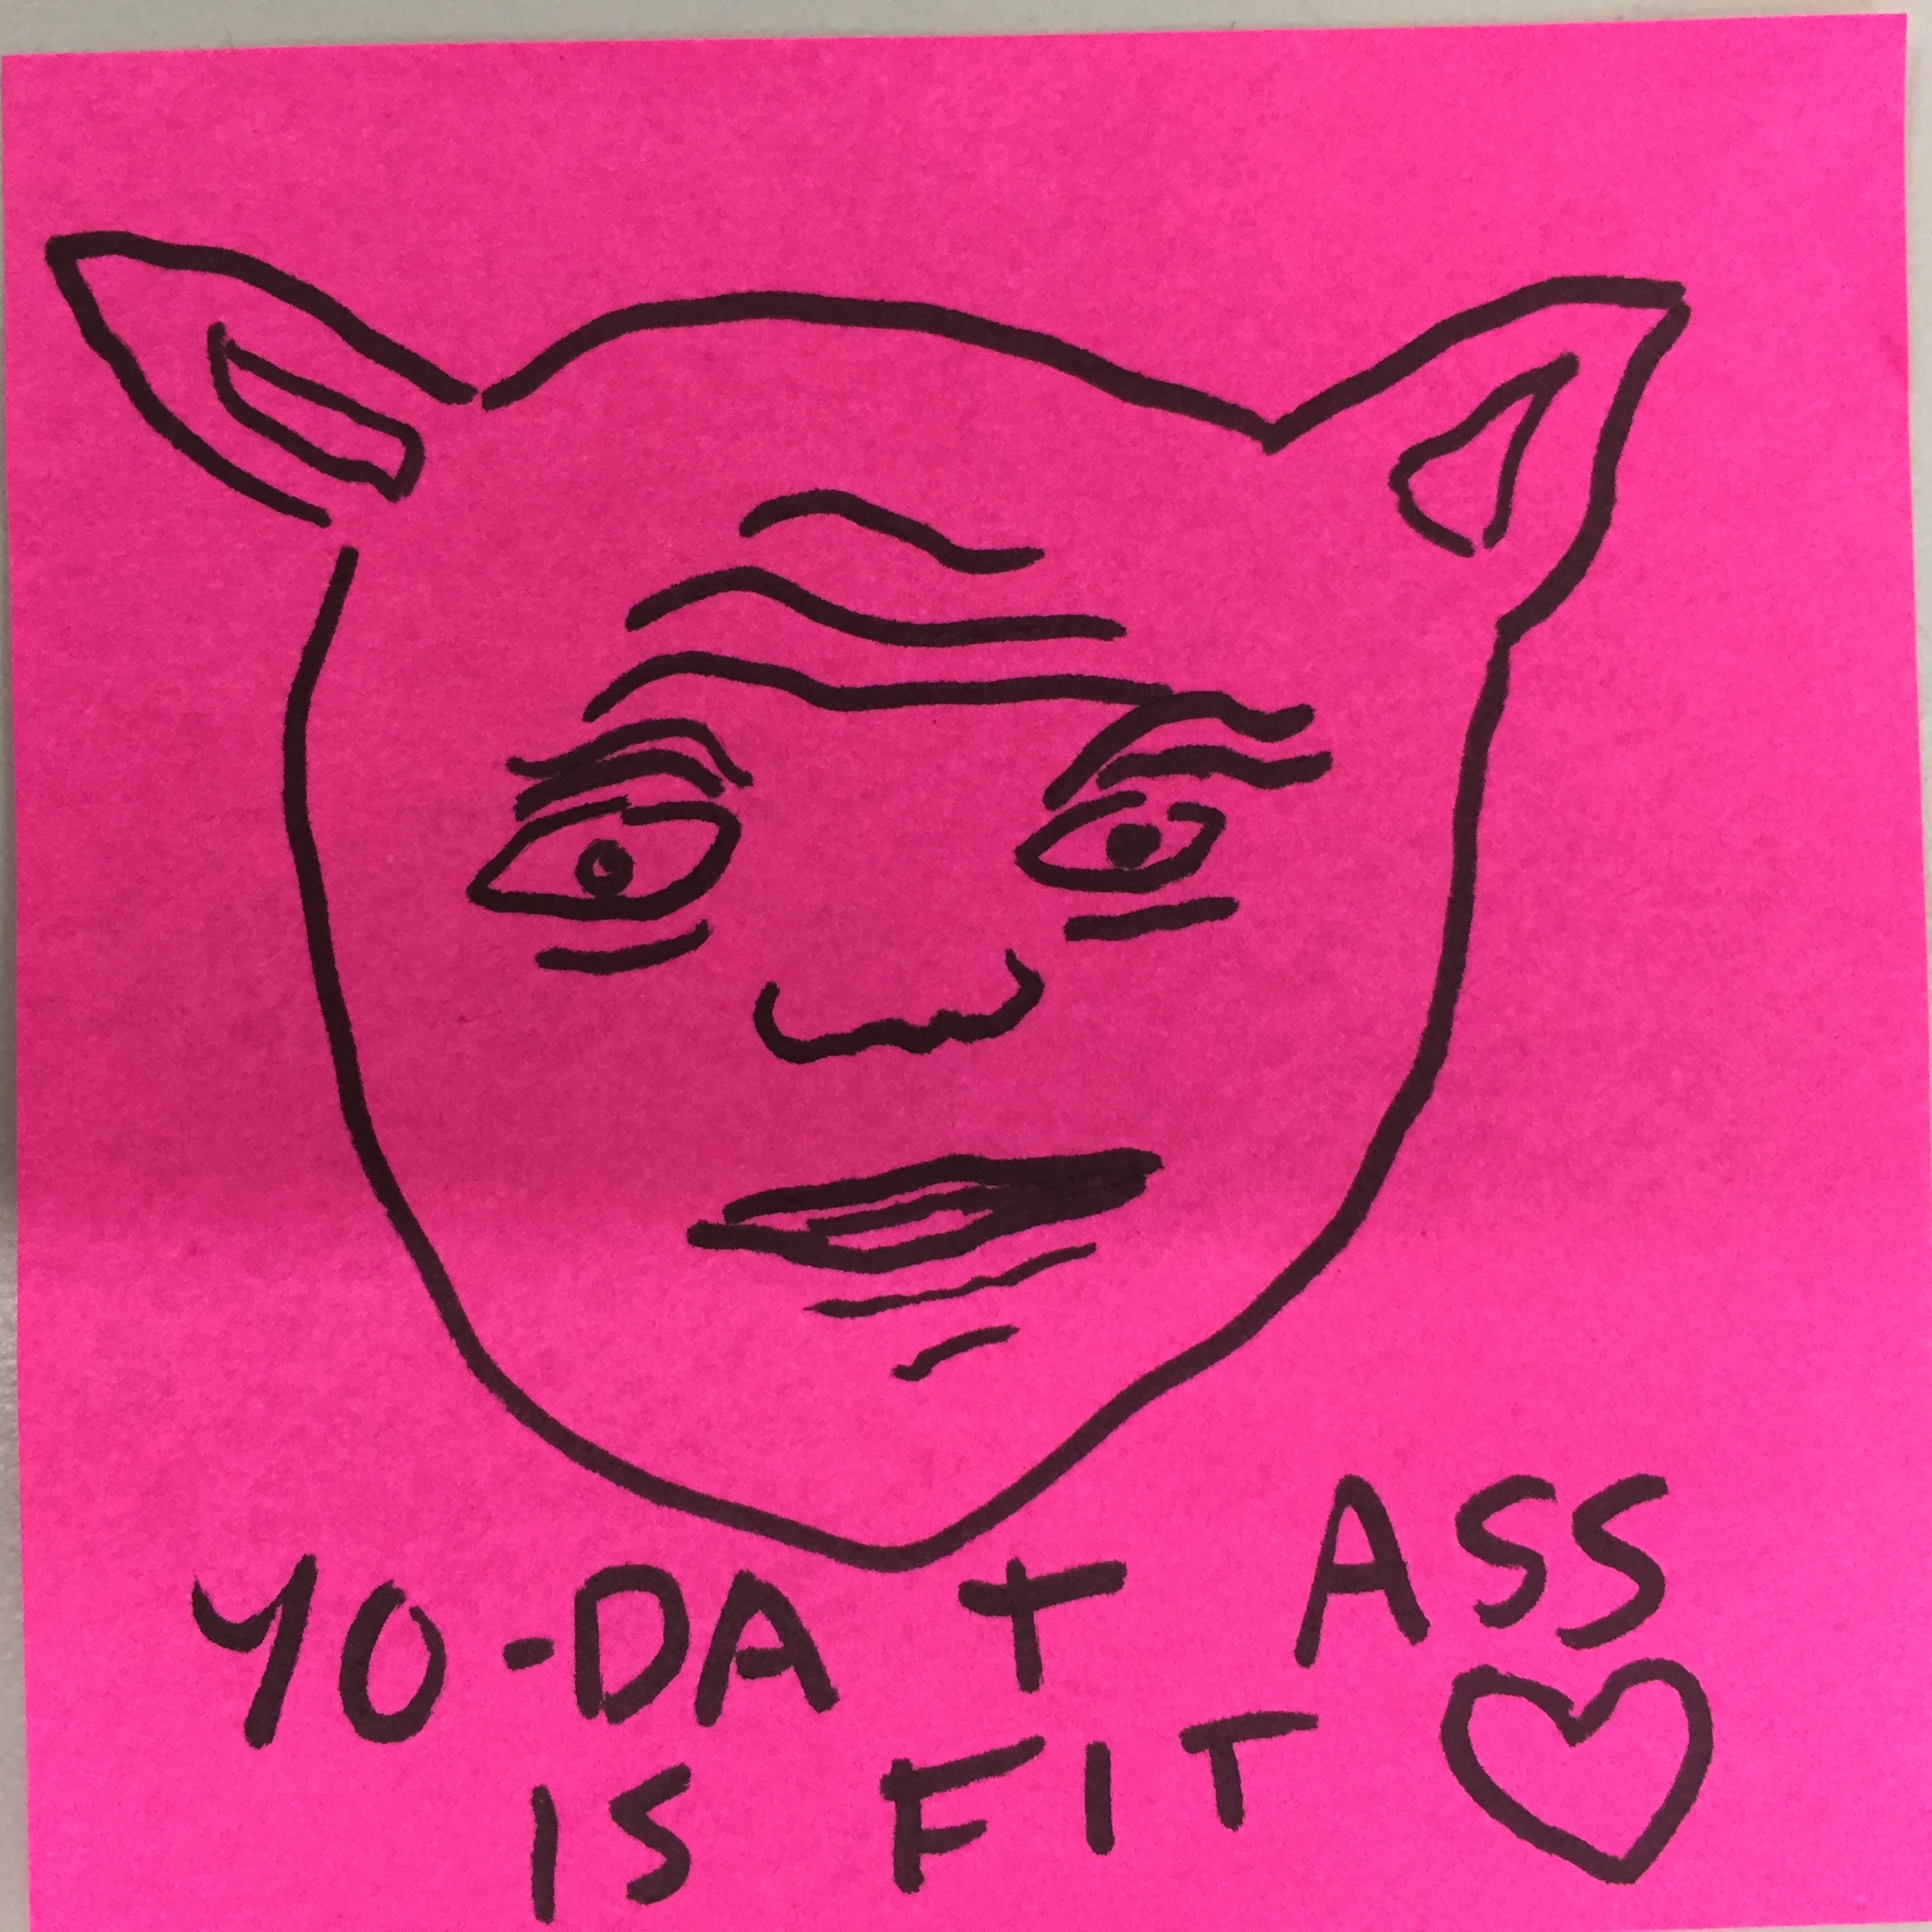 YO-DA T ASS
IS FIT